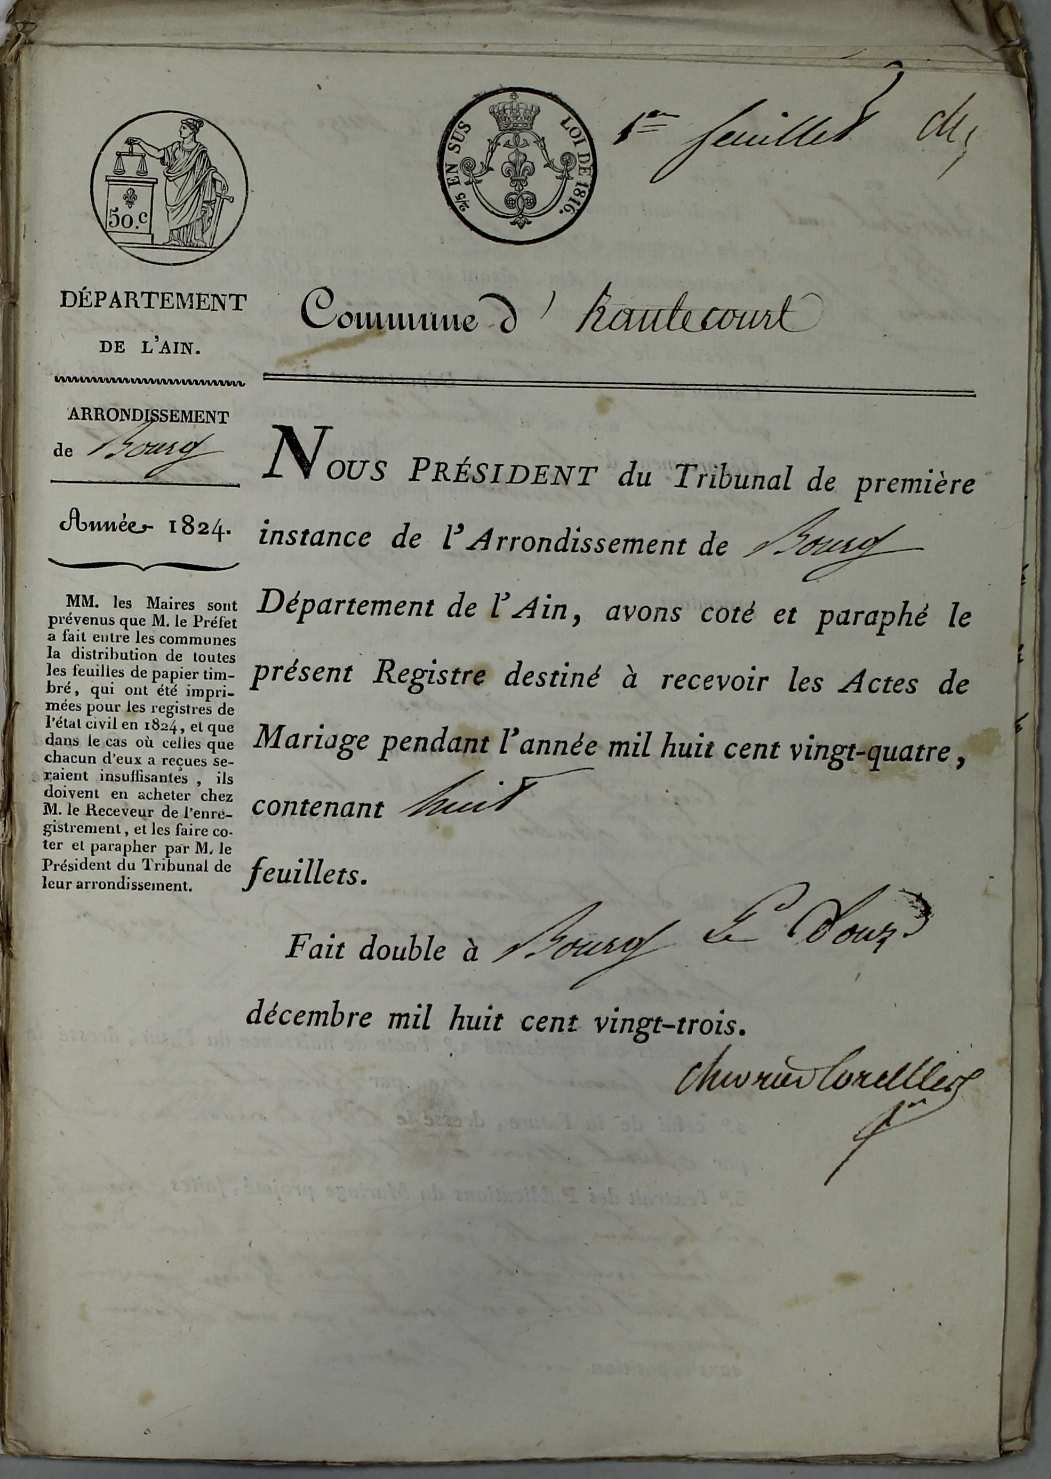 50.c
2/5 EN SUS
LOI DE 1816.
1er feuillet
DÉPARTEMENT
DE L'AIN.
ARRONDISSEMENT
de Bourg
Année 1824.
MM. les Maires sont
prévenus que M. le Préfet
a fait entre les communes
la distribution de toutes
les feuilles de papier tim-
bré, qui ont été impri-
mées pour les registres de
l'état civil en 1824, et que
dans le cas où celles que
chacun d'eux a reçues se-
raient insuffisantes, ils
doivent en acheter chez
M. le Receveur de l'enre-
gistrement, et les faire co-
ter et parapher par M. le
Président du Tribunal de
leur arrondissement.
Commune d'hautecourt
NOUS PRÉSIDENT du Tribunal de première
instance de l'Arrondissement de Bourg
Département de l'Ain, avons coté et paraphé le
présent Registre destiné à recevoir les Actes de
Mariage pendant l'année mil huit cent vingt-quatre,
contenant huit
feuillets.
Fait double à Bourg Le Douze
décembre mil huit cent vingt-trois.